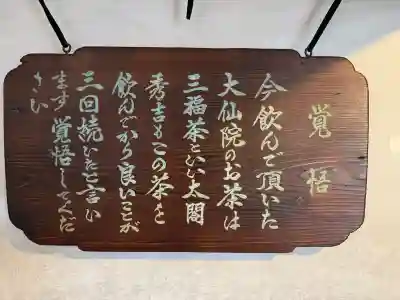 覚悟
今飲んで頂いた
大仙院のお茶は
三福茶といい太閤
秀吉もこの茶を
飲んでから良いことが
三回続いたと言い
ます覚悟してくだ
さい